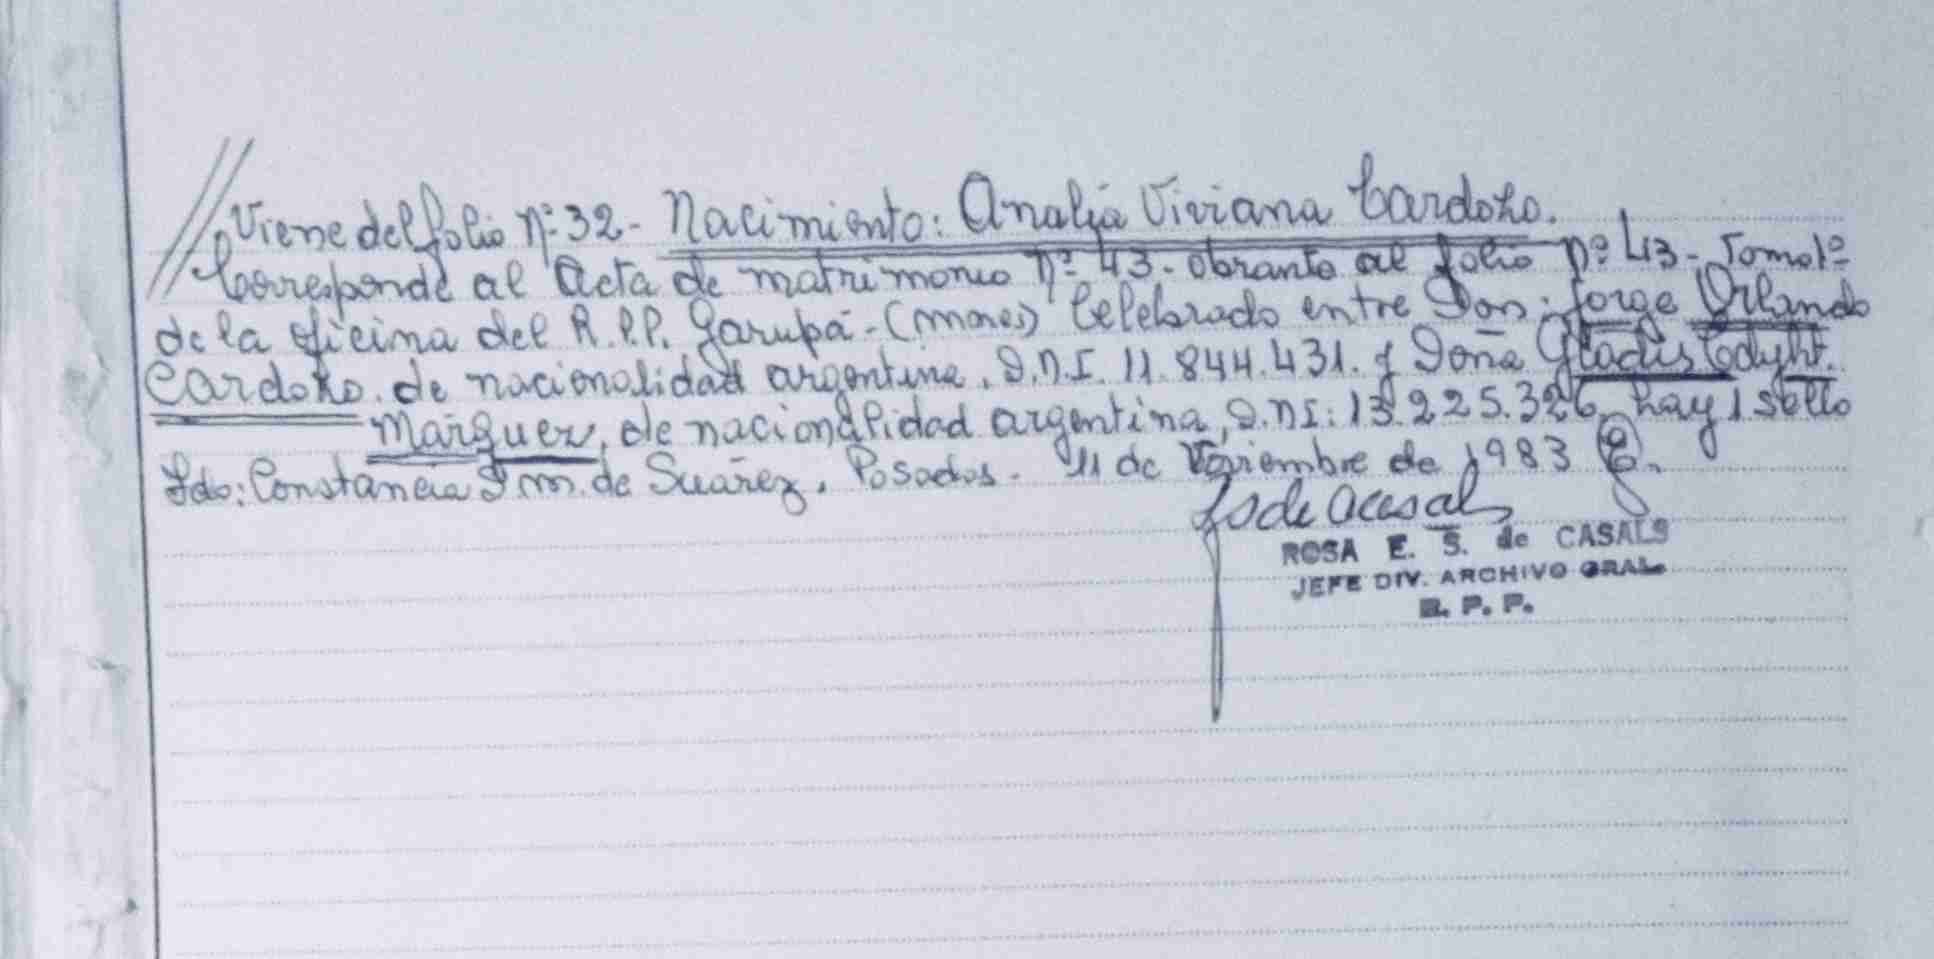 //Viene del folio Nº 32 - Nacimiento: Analia Viviana Cardozo.
Corresponde al Acta de matrimonio Nº 43. obrante al folio Nº 43 - Tomo 1º
de la oficina del R.P.P. Garupá - (Mnes) Celebrado entre Don: Jorge Orlando
Cardozo. de nacionalidad argentina. D.N.I. 11.844.431. y Doña Gladis
Márquez, de nacionalidad argentina, D.NI: 13.225.326. hay 1 sello
Fdo: Constancia M. de Suárez. Posadas - 11 de Noviembre de 1983
ROSA E. S. de CASALS
JEFE DIV. ARCHIVO GRAL.
R. P. P.